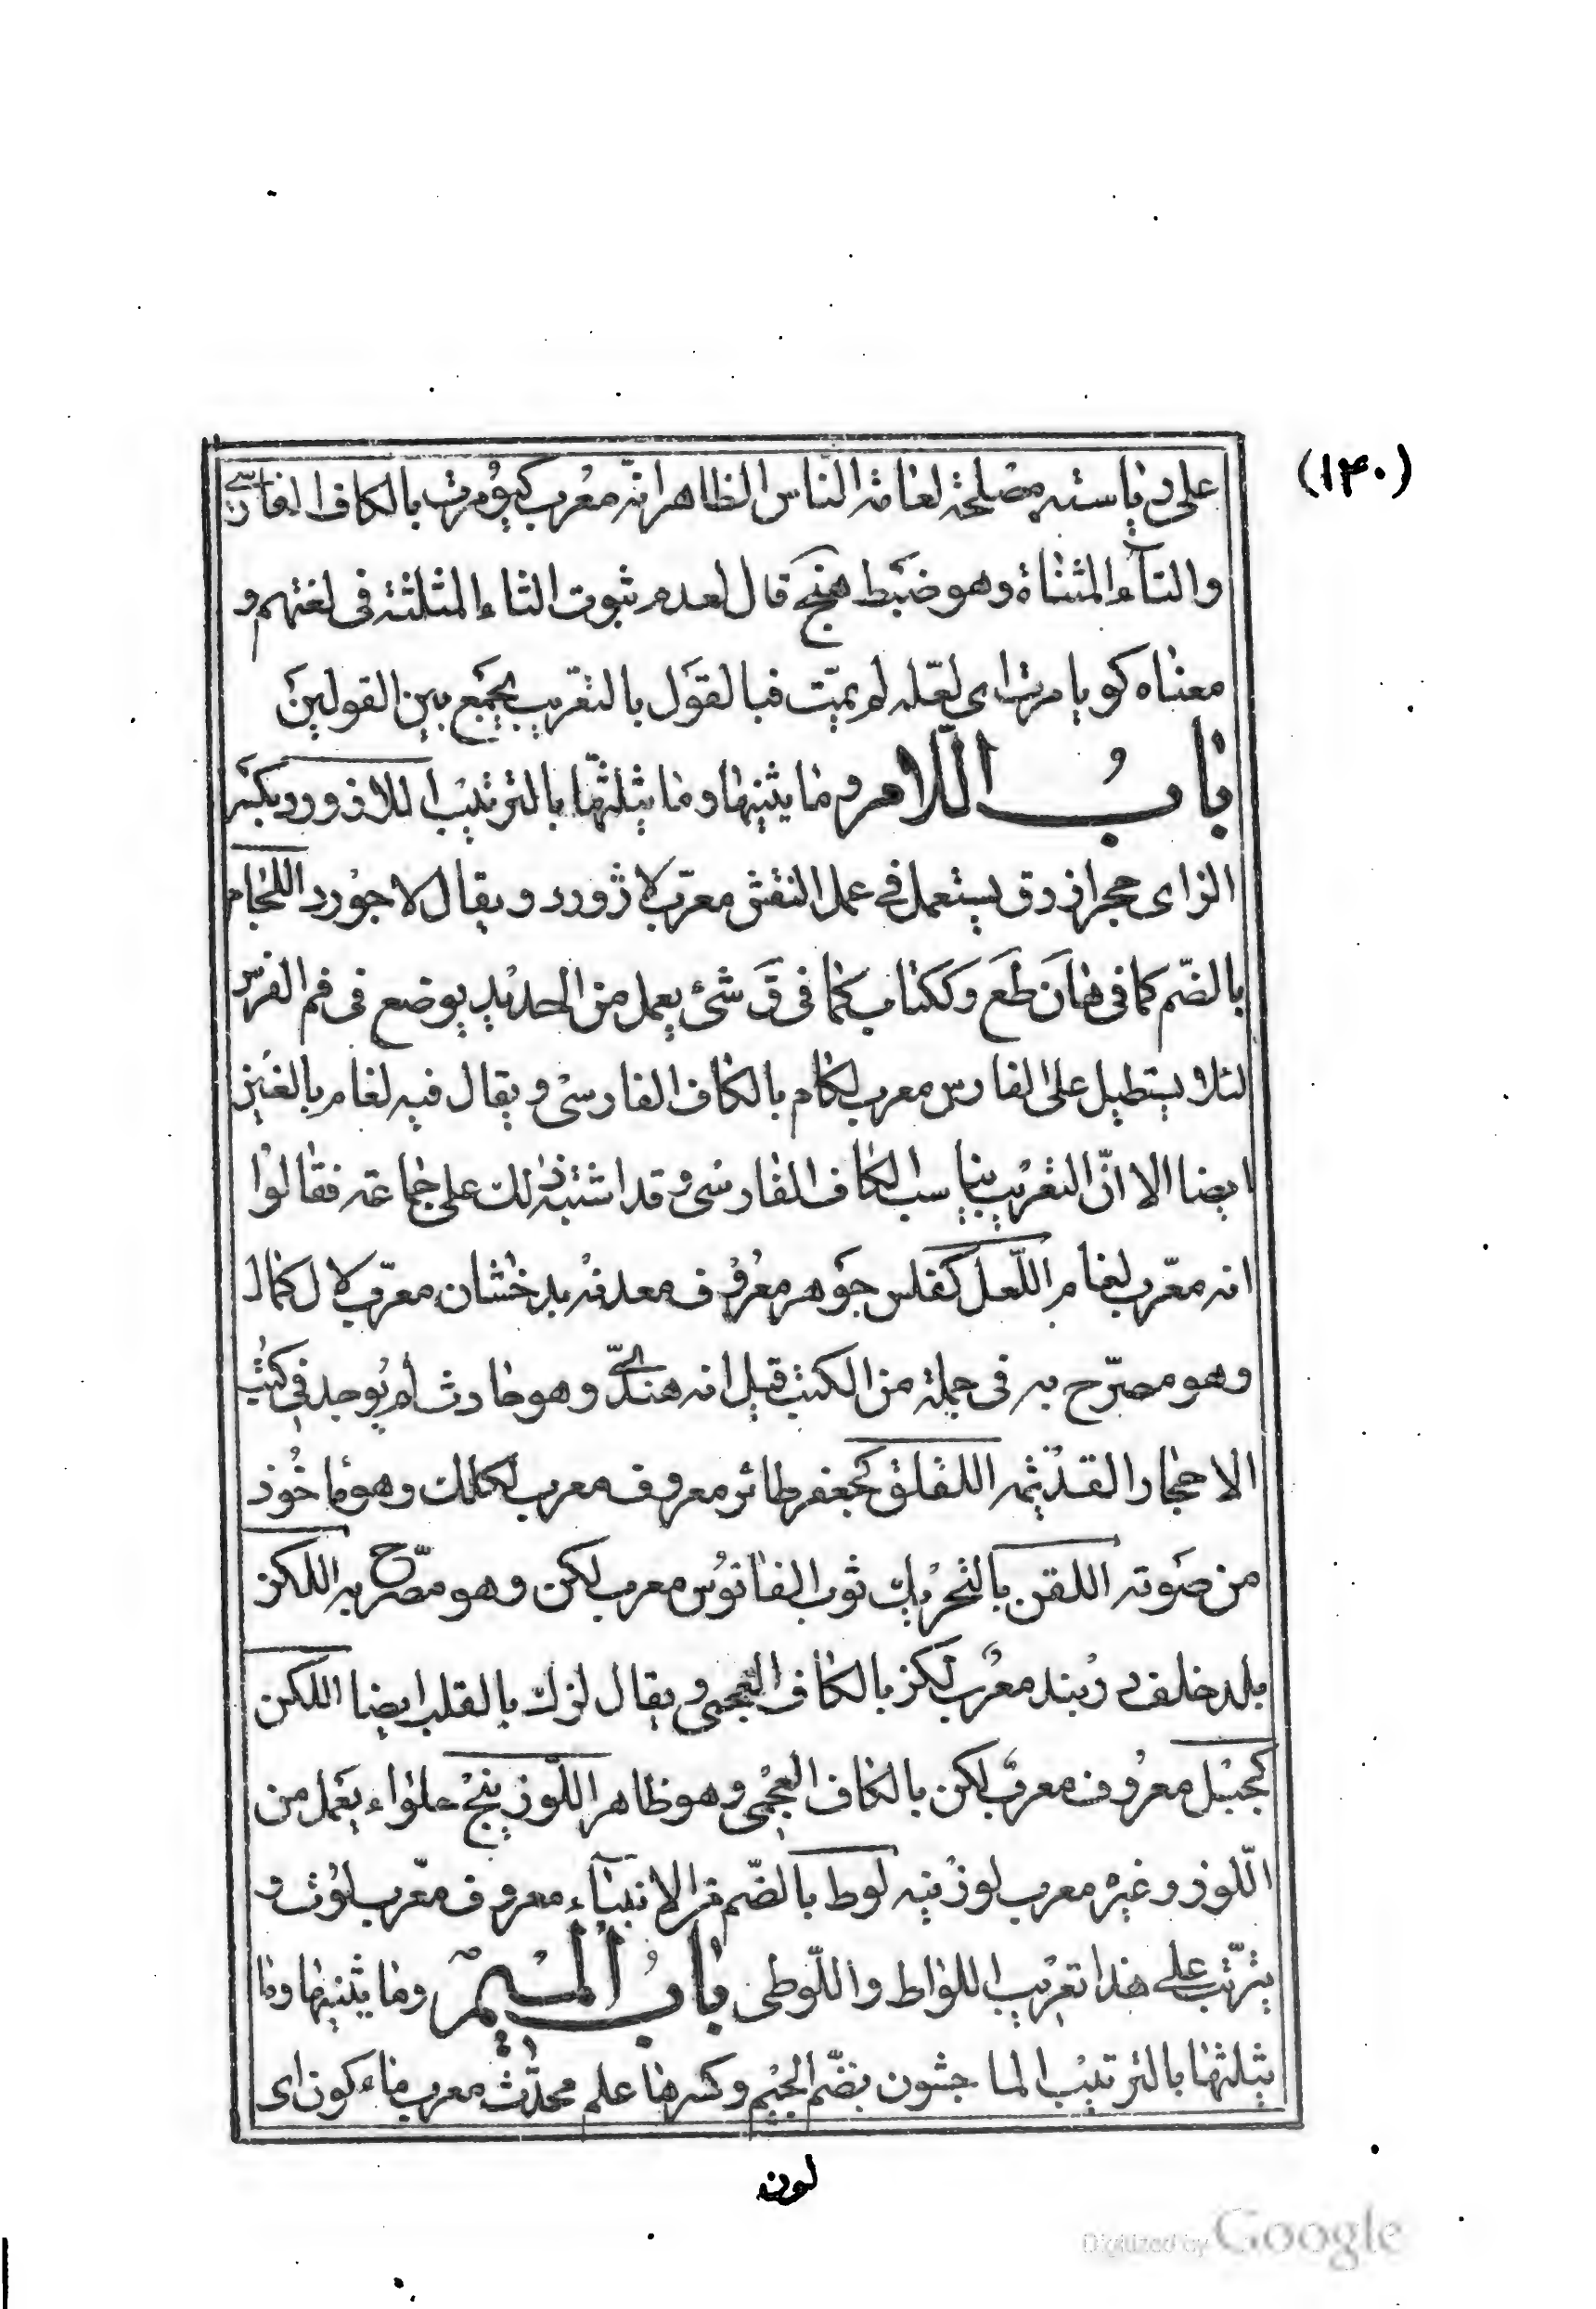 (١۴٠)
على رياسته مصلحة لعامة الناس الظاهر انّه معرب كيومرت بالكاف الفارسى
والتآء المثناة وهو ضبط هنج قال لعدم ثبوت الثاء المثلثة فى لغتهم و
معناه كويا مرت اى لعلّه لم يمت فبالقول بالتعريب يجمع بين القولين
باب اللّام وما يثنيها وما يثلثها بالترتيب اللازورد بكسر
الزاى حجر ازرق يستعمل فى عمل النقش معرّب لاژورد ويقال لاجورد اللجام
بالضّم كما فى هان طع وككتاب كما فى ق شئ يعمل من الحديد يوضع فى فم الفرس
لئلا يستطيل على الفارس معرب لكام بالكاف الفارسى ويقال فيه لغام بالغين
ايضا الا انّ التعريب يناسب الكاف الفارسى وقد اشتبه ذلك على جماعة فقالوا
انه معرّب لغام اللّعل كفلس جوهر معروف معدنه بدخشان معرّب لال كمال
وهو مصرّح به فى جملة من الكتب قيل انه هندىّ وهو حادث لم يوجد فى كتب
الاحجار القديمه اللقلق كجعفر طائر معروف معرب لكلك وهو ماخوذ
من صوته اللقن بالتحريك ثوب الفانوس معرب لكن وهو مصرّح به اللكز
بلد خلف دربند معرّب لكز بالكاف العجمى ويقال لزك بالقلب ايضا اللكن
كجبل معروف معرّب لكن بالكاف العجمى وهو ظاهر اللّوزينج حلواء يعمل من
اللّوز وغيره معرب لوزينه لوط بالضّم من الانبيآء معروف معرّب لوت و
يترتّب على هذا تعريب اللواط واللّوطى باب الميم وما يثنيها وما
يثلثها بالترتيب الماجشون بضّم الجيم وكسرها علم محدّث معرب ماء كون اى
لون
Digitized by Google